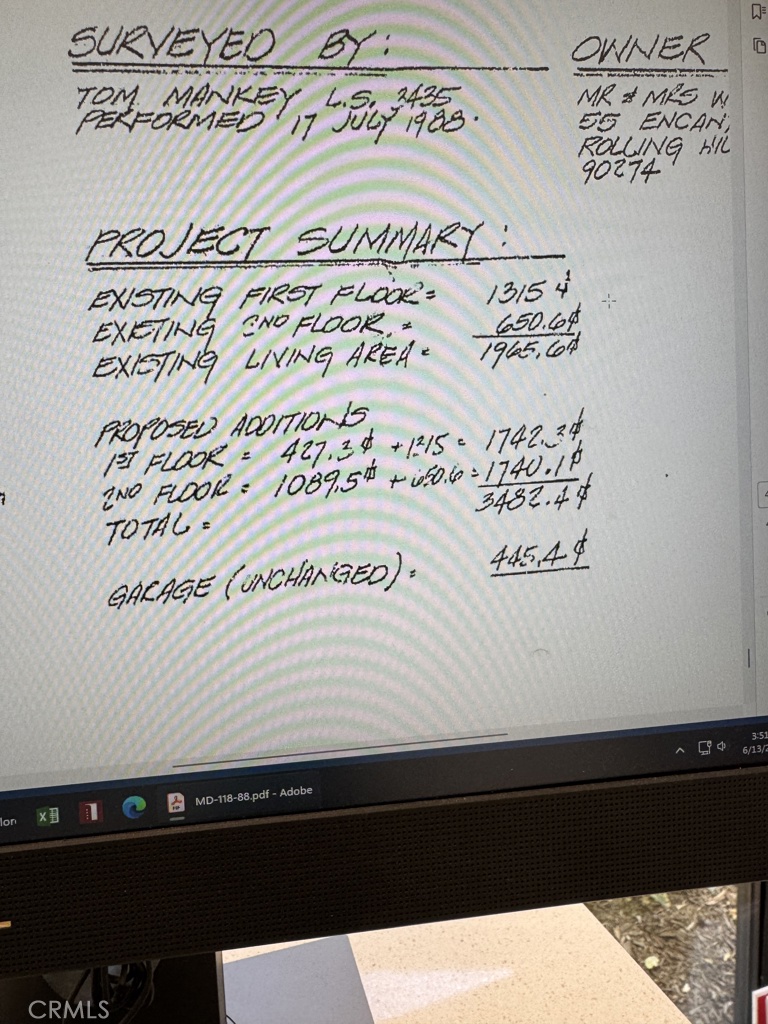 SURVEYED BY:
TOM MANKEY L.S. 2435
PERFORMED 17 JULY 1988.
OWNER
MR & MRS W
55 ENCAN
ROLLING HIL
90274
PROJECT SUMMARY:
EXISTING FIRST FLOOR = 1315
EXISTING 2ND FLOOR = 650.6
EXISTING LIVING AREA = 1965.6
PROPOSED ADDITIONS
1ST FLOOR = 427.3 + 1315 = 1742.3
2ND FLOOR = 1089.5 + 650.6 = 1740.1
TOTAL = 3482.4
GARAGE (UNCHANGED) = 445.4
3:51
6/13/2
MD-118-88.pdf - Adobe
CRMLS